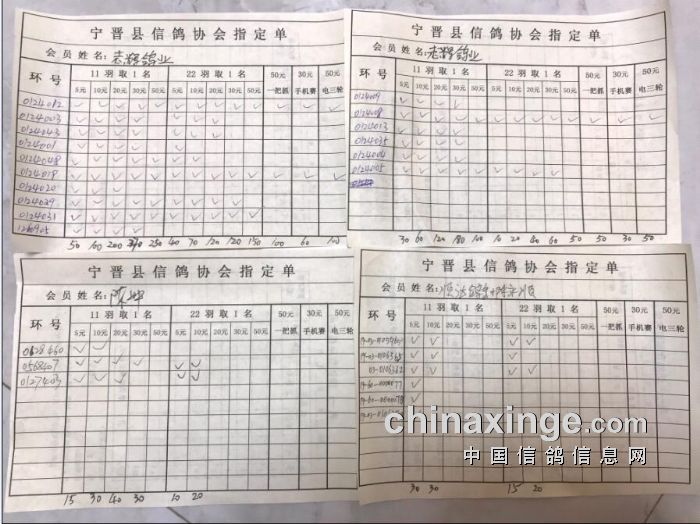 宁晋县信鸽协会指定单
会员姓名: 志辉鸽业
环号 11羽取1名 22羽取1名 50元 30元 50元
5元 10元 20元 30元 50元 5元 10元 20元 30元 50元 一把抓 手机赛 电三轮
0124012
0124003
0124043
0124001
0124048
0124018
0124020
0124029
0124031
1220905
50 100 200 250 40 70 120 120 150 100 60 100
宁晋县信鸽协会指定单
会员姓名: 志辉鸽业
环号 11羽取1名 22羽取1名 50元 30元 50元
5元 10元 20元 30元 50元 5元 10元 20元 30元 50元 一把抓 手机赛 电三轮
0124009
0124008
0124013
0124035
0124004
0124005
30 60 120 180 100 10 20 40 60 50 50 30 50
宁晋县信鸽协会指定单
会员姓名:
环号 11羽取1名 22羽取1名 50元 30元 50元
5元 10元 20元 30元 50元 5元 10元 20元 30元 50元 一把抓 手机赛 电三轮
0568407
0127403
15 30 40 30 10 20
宁晋县信鸽协会指定单
会员姓名:
环号 11羽取1名 22羽取1名 50元 30元 50元
5元 10元 20元 30元 50元 5元 10元 20元 30元 50元 一把抓 手机赛 电三轮
30 30 15 20
chinaxinge.com
中国信鸽信息网